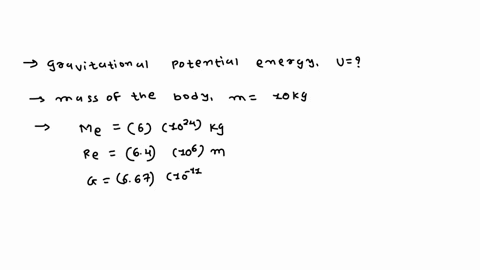 → gravitational potential energy, U=?
→ mass of the body, m= 10kg
→ Me = (6) (10²⁴) kg
Re = (6.4) (10⁶) m
G = (6.67) (10⁻¹¹